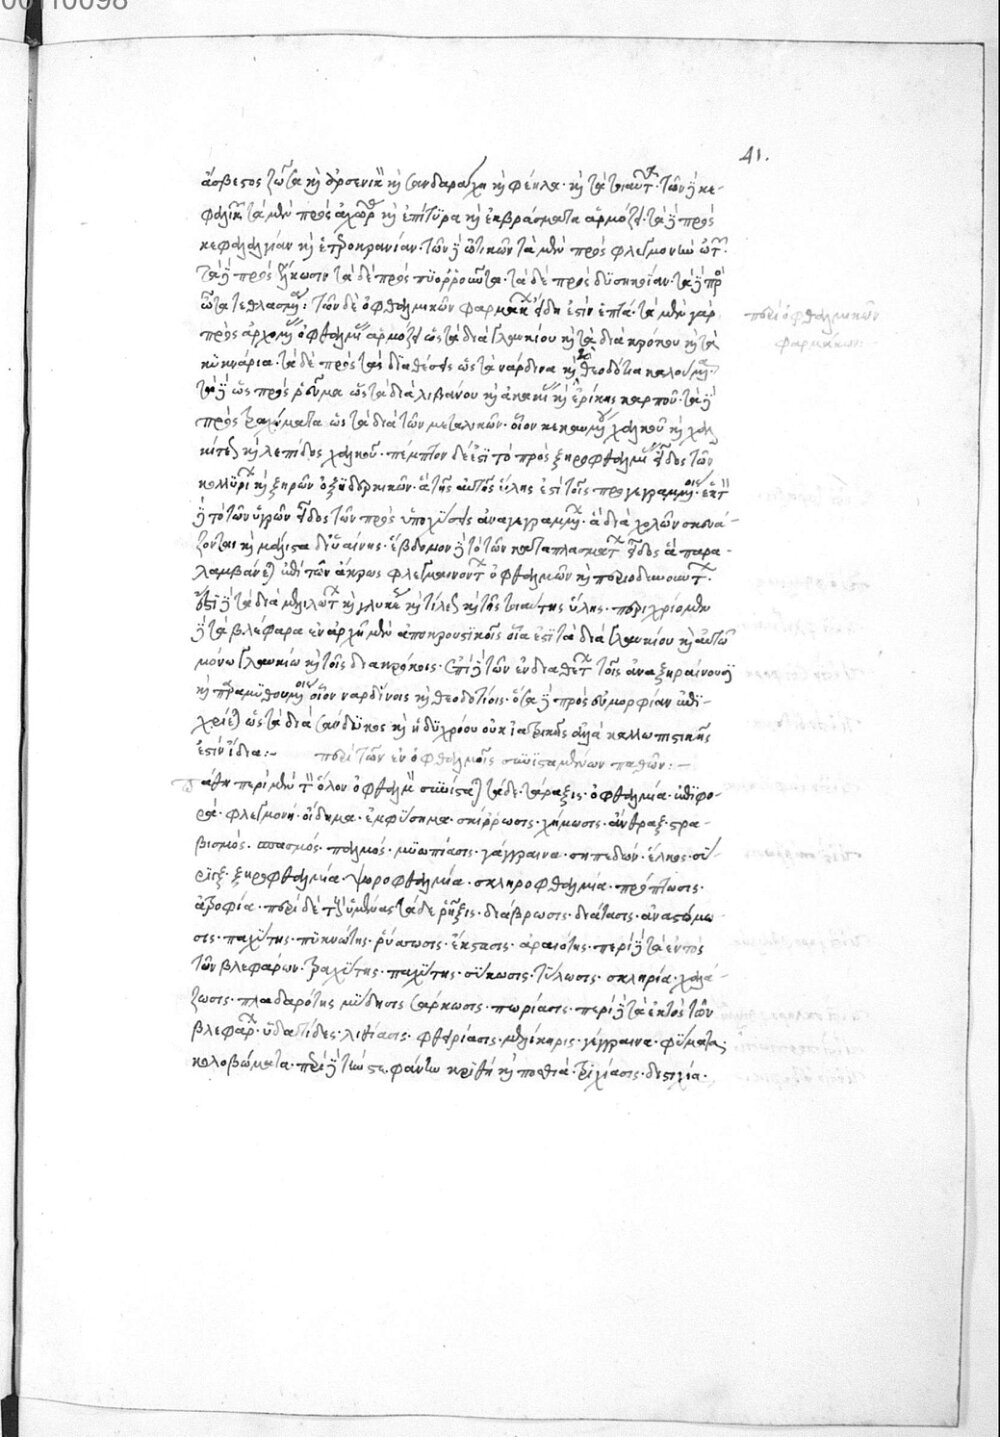 00110098
41.
ἄσβεστος ζῶσα καὶ ἀρσενικὸν καὶ σανδαράχη καὶ φέκλα· καὶ τὰ τοιαῦτα· τῶν δὲ κε-
φαλικῶν τὰ μὲν πρὸς ἀχῶρας καὶ ἐπίτυρα καὶ ἐκβράσματα ἁρμόζει· τὰ δὲ πρὸς
κεφαλαλγίαν καὶ ἑτεροκρανίαν· τῶν δὲ ὠτικῶν τὰ μὲν πρὸς φλεγμονὴν ὤτων·
τὰ δὲ πρὸς ἕλκωσιν τὰ δὲ πρὸς πυορροοῦντα· τὰ δὲ πρὸς δυσηκοΐαν· τὰ δὲ πρὸς
ὦτα τεθλασμένα: τῶν δὲ ὀφθαλμικῶν φαρμάκων εἴδη ἐστὶν ἑπτά· τὰ μὲν γὰρ
περὶ ὀφθαλμικῶν
φαρμάκων:
πρὸς ἀρχομένας ὀφθαλμίας ἁρμόζει ὡς τὰ διὰ γλαυκίου καὶ τὰ διὰ κρόκου καὶ τὰ
κυκνάρια· τὰ δὲ πρὸς τὰς διαθέσεις ὡς τὰ νάρδινα καὶ θεοδότια καλούμενα·
τὰ δὲ ὡς πρὸς ῥεῦμα ὡς τὰ διὰ λιβάνου καὶ ἀκακίας καὶ ἐρίκης καρποῦ· τὰ δὲ
πρὸς τραχώματα ὡς τὰ διὰ τῶν μεταλικῶν· οἷον κεκαυμένου χαλκοῦ καὶ χαλ
κίτεως καὶ λεπίδος χαλκοῦ· πέμπτον δέ ἐστι τὸ πρὸς ξηροφθαλμίας εἶδος τῶν
κολλυρίων καὶ ξηρῶν ὀξυδερκικῶν· ἃ τῆς αὐτῆς ὕλης ἐστὶ τοῖς προγεγραμμένοις· ἕκτον
δὲ τὸ τῶν ὑγρῶν εἶδος τῶν πρὸς ὑποχύσεις ἀναγεγραμμένων· ἃ διὰ χολῶν σκευά-
ζονται καὶ μάλιστα δι' ὑαίνης· ἕβδομον δὲ τὸ τῶν καταπλασμάτων εἶδος ἃ παρα-
λαμβάνεται ἐπὶ τῶν ἄκρως φλεγμαινόντων ὀφθαλμῶν καὶ περιοδυνώντων·
ἔστι δὲ τὰ διὰ μηλιλώτων καὶ γλυκέως καὶ τίλεως καὶ τῆς τοιαύτης ὕλης· περιχρίομεν
δὲ τὰ βλέφαρα ἐν ἀρχῇ μὲν ἀποκρουστικοῖς οἷα ἐστὶ τὰ διὰ γλαυκίου καὶ αὐτῷ
μόνῳ γλαυκίῳ καὶ τοῖς διακρόκοις· ἐπὶ δὲ τῶν ἐν διαθέσει τοῖς ἀναξηραίνουσι
καὶ παραμυθουμένοις οἷον ναρδίνοις καὶ θεοδοτίοις· ὅσα δὲ πρὸς εὐμορφίαν ἐπι-
χρίεται ὡς τὰ διὰ σάνδυκος καὶ ἡδυχρόου οὐκ ἰατρικῆς ἀλλὰ καλλωπιστικῆς
ἐστὶν ἴδια:- περὶ τῶν ἐν ὀφθαλμοῖς συνισταμένων παθῶν:-
πάθη περὶ μὲν τὸν ὅλον ὀφθαλμὸν συνίσταται τάδε· τάραξις· ὀφθαλμία· ἐπιφο-
ρά· φλεγμονή· οἴδημα· ἐμφύσημα· σκίρρωσις· χήμωσις· ἄνθραξ· στρα-
βισμός· σπασμός· παλμός· μυωπίασις· γάγγραινα· σηπεδών· ἕλκος· σύ-
ριγξ· ξηροφθαλμία· ψωροφθαλμία· σκληροφθαλμία· πρόπτωσις·
ἀτροφία· περὶ δὲ τοὺς ὑμένας τάδε ῥῆξις· διάβρωσις· διάτασις· ἀναστόμω
σις· παχύτης· πυκνότης· ῥύσωσις· ἔκτασις· ἀραιότης· περὶ δὲ τὰ ἐντὸς
τῶν βλεφάρων· τραχύτης· παχύτης· σύκωσις· τύλωσις· σκληρία· χαλά-
ζωσις· πλαδαρότης μύδησις σάρκωσις· πωρίασις· περὶ δὲ τὰ ἐκτὸς τῶν
βλεφάρων· ὑδατίδες· λιθίασις· φθειρίασις· μελίκηρις· γάγγραινα· φύματα·
κολοβώματα· περὶ δὲ τὴν στεφάνην κριθὴ καὶ ποσθία· τριχίασις· διστιχία·